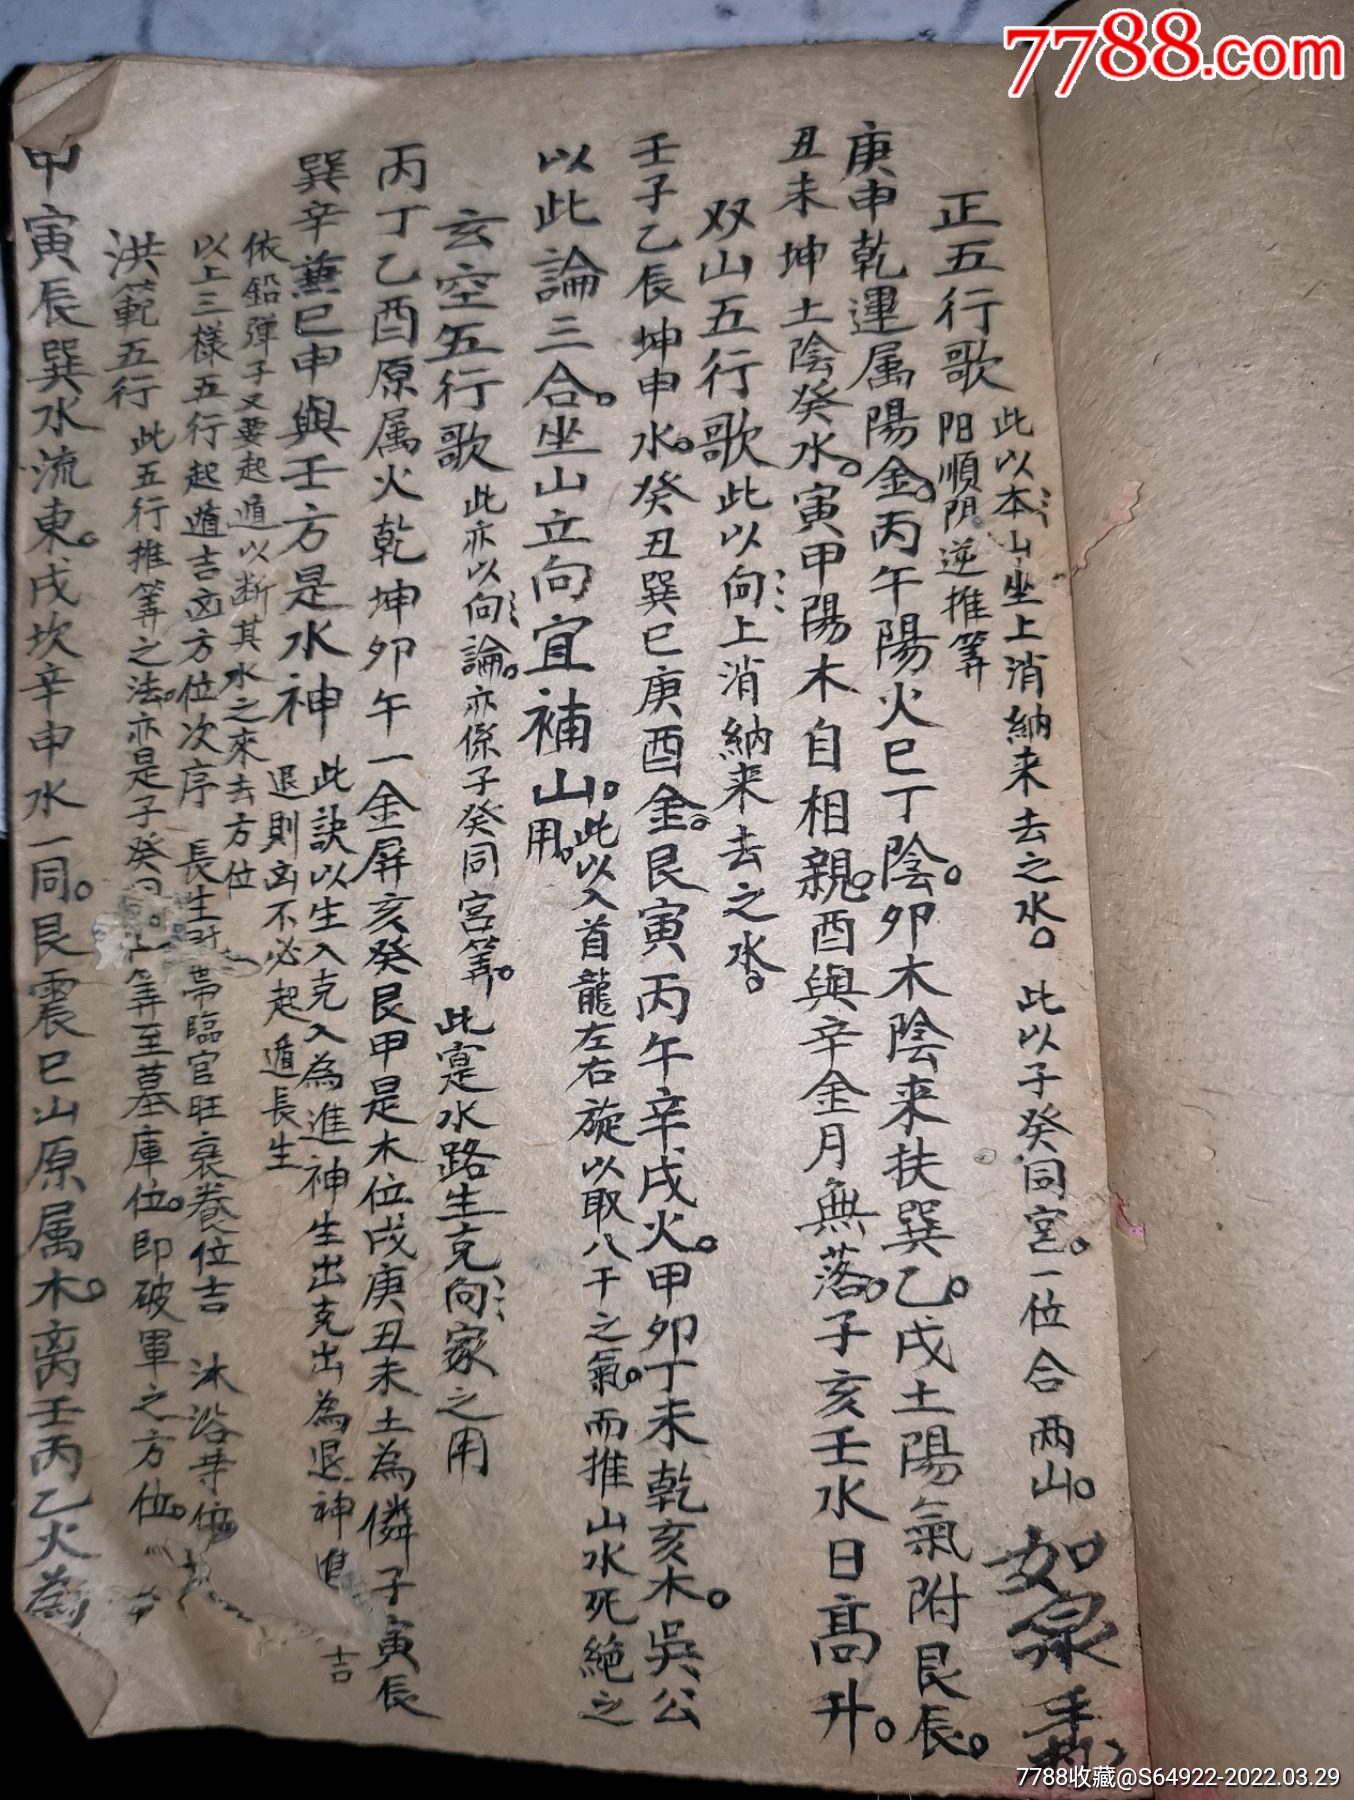 7788.com
正五行歌 此以本山坐上消納来去之水。此以子癸同宮。一位合两山。如泉手
阳順阴逆推筭
庚申乾運属陽金。丙午陽火巳丁陰。卯木陰来扶巽乙。戌土陽氣附艮辰。
丑未坤土陰癸水。寅甲陽木自相親。酉與辛金月無落。子亥壬水日高升。
双山五行歌 此以向上消納来去之水。
壬子乙辰坤申水。癸丑巽巳庚酉金。艮寅丙午辛戌火。甲卯丁未乾亥木。吳公
以此論三合。坐山立向宜補山。用。此以入首龍左右旋以取八干之氣。而推山水死絶之
玄空五行歌 此亦以向論。亦係子癸同宮筭。此寔水路生克向家之用
丙丁乙酉原属火乾坤卯午一金屏亥癸艮甲是木位戌庚丑未土為憐子寅辰
巽辛蕪巳申與壬方是水神 此訣以生入克入為進神生出克出為退神進 吉
退則凶不必起遁長生
依鉛弾子又要起遁以断其水之來去方位
以上三樣五行起遁吉凶方位次序 長生 帯臨官旺衰養位吉 沐浴等位
洪範五行 此五行推筭之法。亦是子癸同 筭至墓庫位。即破軍之方位。
甲寅辰巽水流東。戌坎辛申水一同。艮震巳山原属木。离壬丙乙火為
7788收藏@S64922-2022.03.29